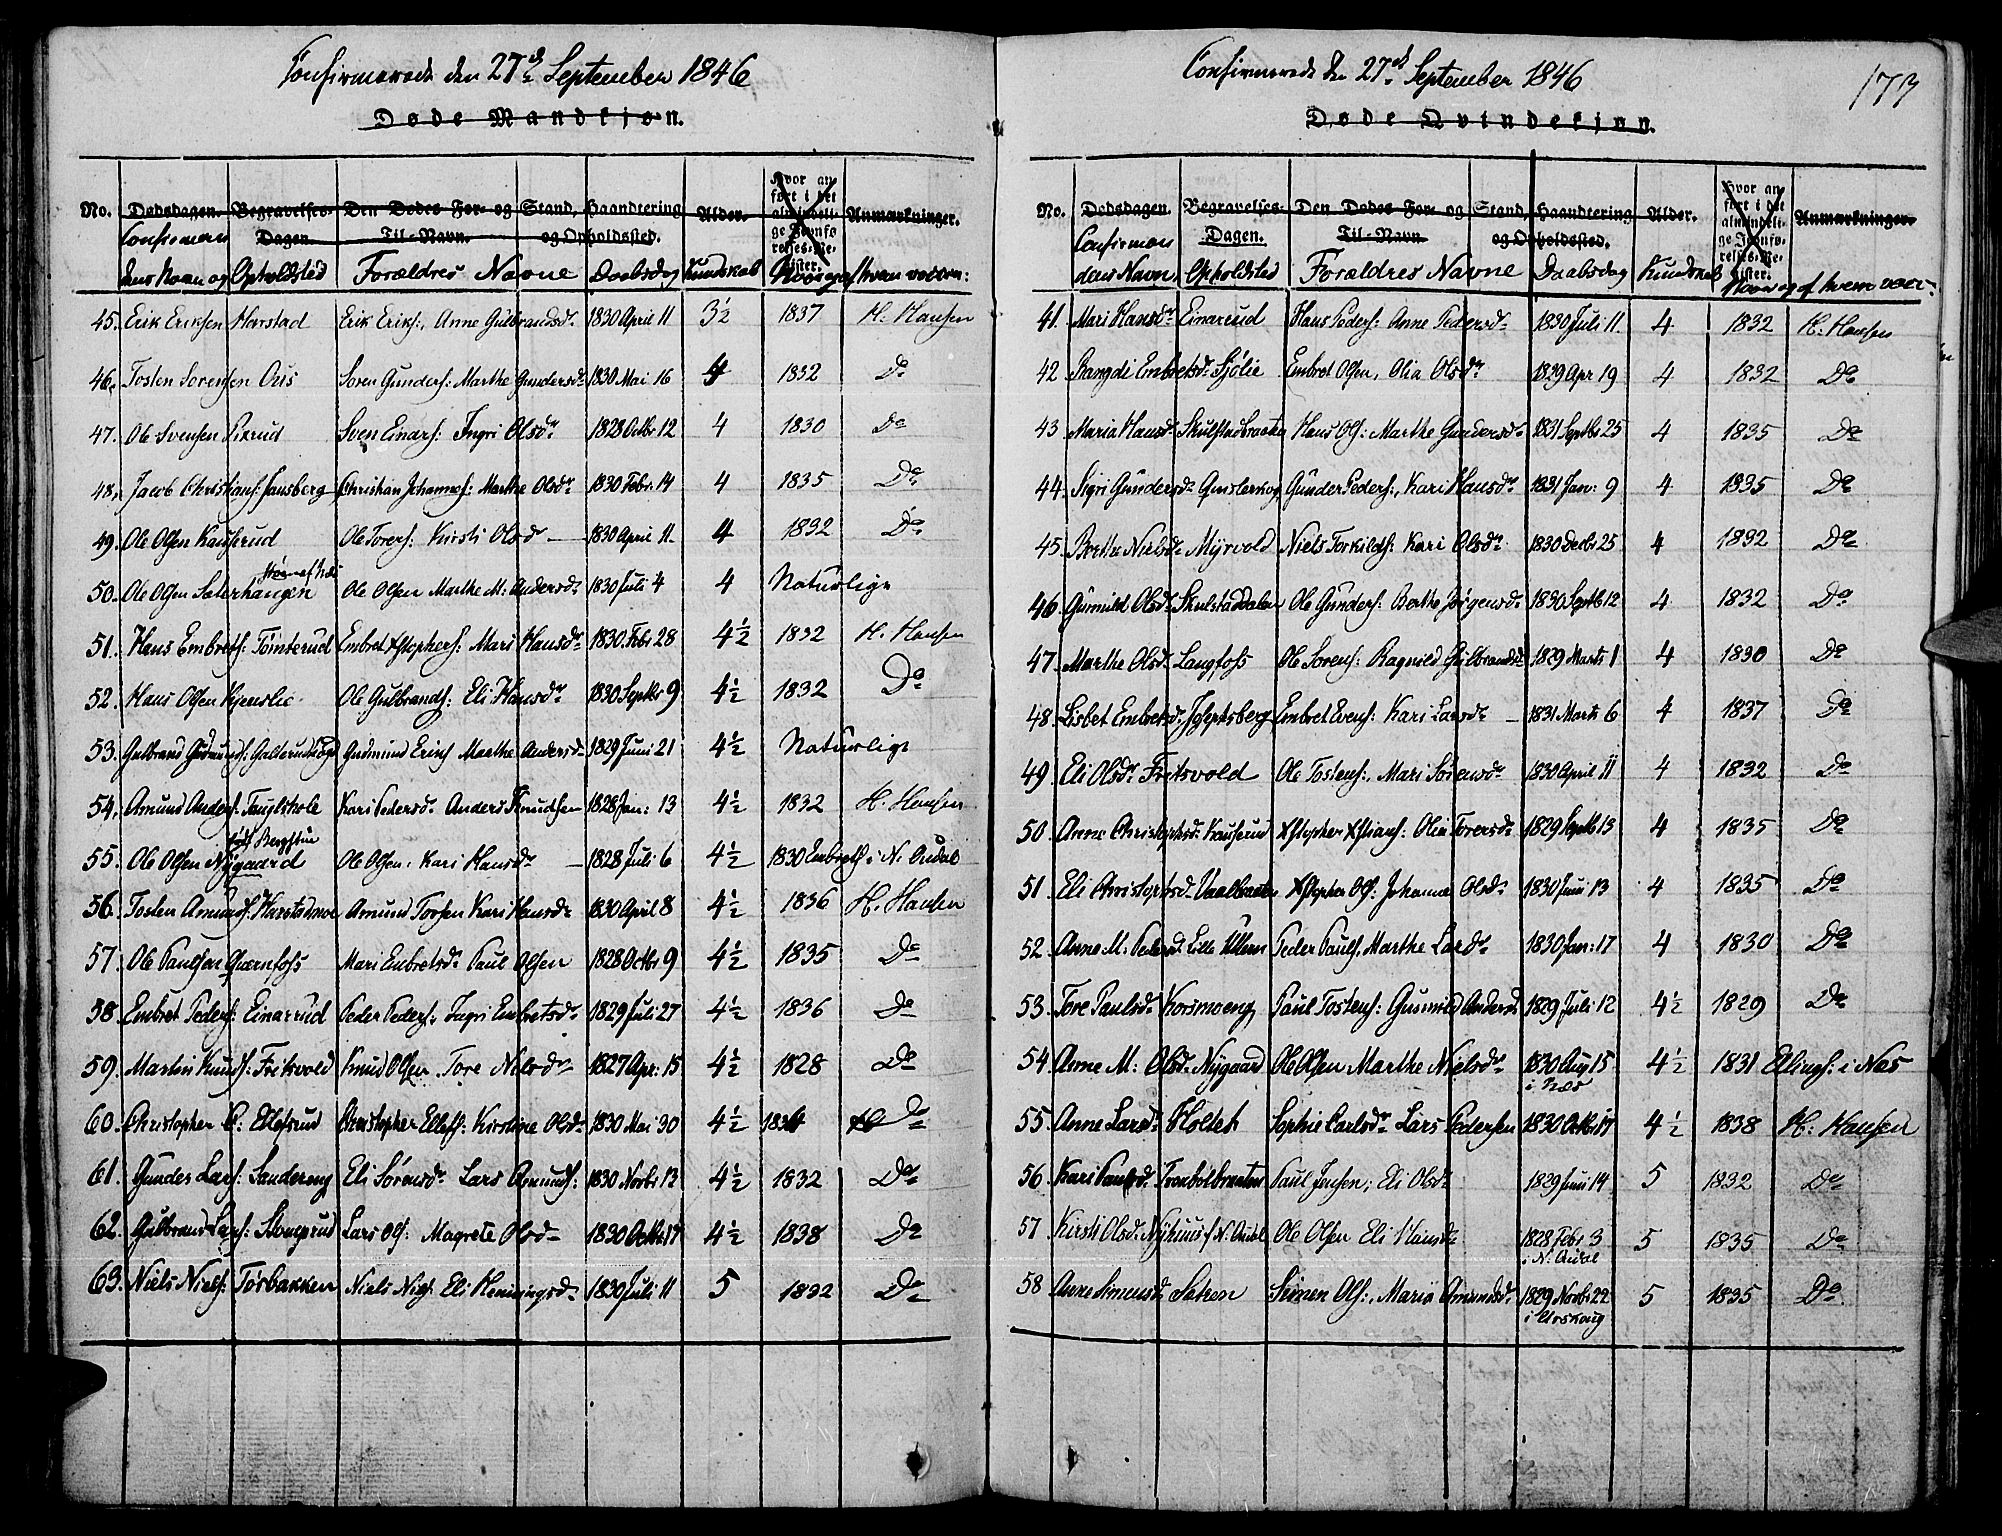 Confirmerede den 27de September 1846
Døde Mandkjøn.
No. Dødsdagen. Begravelses-Dagen. Den Dødes For- og Til-Navn. Stand, Haandtering og Opholdssted. Alder. Hvor anført i det almindelige Jevnførelses-Register. Anmærkninger.
Confirmandens Navn og Opholdsted Forældres Navne Daabsdag Kundskab Naar og af hvem vaccin:
45. Erik Eriksen Harstad Erik Eriks:, Anne Gulbrandsdr 1830 April 11 3½ 1837 H. Hansen
46. Tosten Sorensen Ous Soren Gunders: Marthe Gundersdr 1830 Mai 16 4 1832 Do
47. Ole Svensen Sven Einars: Ingri Olsdr 1828 Octbr 12 4 1830 Do
48. Jacob Christians: Fansberg Christian Johannes: Marthe Olsdr 1830 Febr. 14 4 1835 Do
49. Ole Olsen Kauserud Ole Torers: Kirsti Olsd 1830 April 11 4 1832 Do
50. Ole Olsen Sæterhaugen Ole Olsen Marthe M: Andersdr 1830 Juli 4 4 Naturlige
51. Hans Embrets: Tømterud Embret Xstophers: Mari Hansdr 1830 Febr 28 4½ 1832 H. Hansen
52. Hans Olsen Hjemlie Ole Gulbrands: Eli Hansdr 1830 Septbr 9 4½ 1832 Do
53. Gulbrand Gudmunds: Gudmund Erics Marthe Andersdr 1829 Juni 21 4½ Naturlige
54. Amund Anders: Fauglshole Kari Pedersdr Anders Knudsen 1828 Jan: 13 4½ 1832 H. Hansen
55. Ole Olsen Nÿgaard Ole Olsen, Kari Hansdr 1828 Juli 6 4½ 1830 Embrets i N. Oudal
56. Tosten Amunds: Harstadmoe Amund Torsen Kari Hansdr 1830 April 8 4½ 1836 H. Hansen
57. Ole Paulsen Qværnfoss Mari Embretsdr Paul Olsen 1828 Octbr 9 4½ 1835 Do
58. Embret Peders: Einarrud Peder Peders: Ingri Embretsdr 1829 Juli 27 4½ 1836 Do
59. Martin Knuds: Fritsvold Knud Olsen Tore Nilsdr 1827 Apr: 15 4½ 1828 Do
60. Christopher C: Ellefsrud Christopher Ellefs: Kirstine Olsdr 1830 Mai 30 4½ Do
61. Gunder Lars: Sandereng Eli Sørensdr Lars Amunds: 1830 Novbr 13 4½ 1832 Do
62. Gulbrand Lars: Lars Ols: Magrete Olsdr 1830 Octbr 17 4½ 1838 Do
63. Niels Niels: Tørbakken Niels Niels Eli Henningsdr 1830 Juli 11 5 1832 Do
Confirmerede den 27de September 1846
173
Døde Qvindekjøn.
No. Dødsdagen. Begravelses-Dagen. Den Dødes For- og Til-Navn. Stand, Haandtering og Opholdssted. Alder. Hvor anført i det almindelige Jevnførelses-Register. Anmærkninger.
Confirmandens Navn Opholdsted Forældres Navne Daabsdag Kundskab Naar og af hvem vacc:
41. Mari Hansdr Einarrud Hans Peders: Anne Pedersdr 1830 Juli 11 4 1832 H. Hansen
42 Rangdi Embretsdr Sjølie Embret Olsen, Olia Olsdr 1829 Apr 19 4 1832 Do
43 Maria Hansdr Skulstadbraata Hans Ols: Marthe Gundersdr 1831 Septbr 25 4 1835 Do
44. Sigri Gundersdr Gunder Peders:, Kari Hansdr 1831 Jan: 9 4 1835 Do
45. Berthe Nielsdr Mÿrvold Niels Torkilds: Kari Olsdr 1830 Decbr 25 4 1832 Do
46. Gunnild Olsdr Skulstaddalen Ole Gunders: Berthe Jørgensdr 1830 Septb 12 4 1832 Do
47. Marthe Olsdr Langfoss Ole Sorens: Ragnild Gulbrandsdr 1829 Marts 1 4 1830 Do
48. Lisbet Embretsdr Josephsberg Embret Evens: Kari Larsdr 1831 Marts 6 4 1837 Do
49 Eli Olsdr Fritsvold Ole Tostens:, Mari Sørensdr 1830 April 11 4 1832 Do
50 Anne Christophsdr Kauserud Xstopher Xstians: Olia Torersdr 1829 Septb 13 4 1835 Do
51 Eli Christophsdr Xstopher Ols: Johanna Olsdr 1830 Juni 13 4 1835 Do
52 Anne M: Pedersdr Lille Ullern Peder Pauls, Marthe Larsdr 1830 Jan: 17 4 1830 Do
53. Tore Paulsdr Korsmoeng Paul Tostens: Gunnild Andersd 1829 Juli 12 4½ 1829 Do
54 Anne M: Olsdr Nÿgaard Ole Olsen Marthe Nielsdr 1830 Aug 15 i Næs 4½ 1831 Elings: i Næs
55. Anne Larsdr Holtet Sophie Carlsdr Lars Pedersen 1830 Octbr 17 4½ 1838 H. Hansen
56 Kari Paulsdr Paul Jensen, Eli Olsdr 1829 Juni 14 5 1832 Do
57 Kirsti Olsdr Nÿhuus f N. Oudal Ole Olsen Eli Hansdr 1828 Febr 3 i N. Oudal 5 1835 Do
58 Anne Simensdr Simen Ols:, Maria Amundsdr 1829 Novbr 22 i Urskoug 5 1835 Do